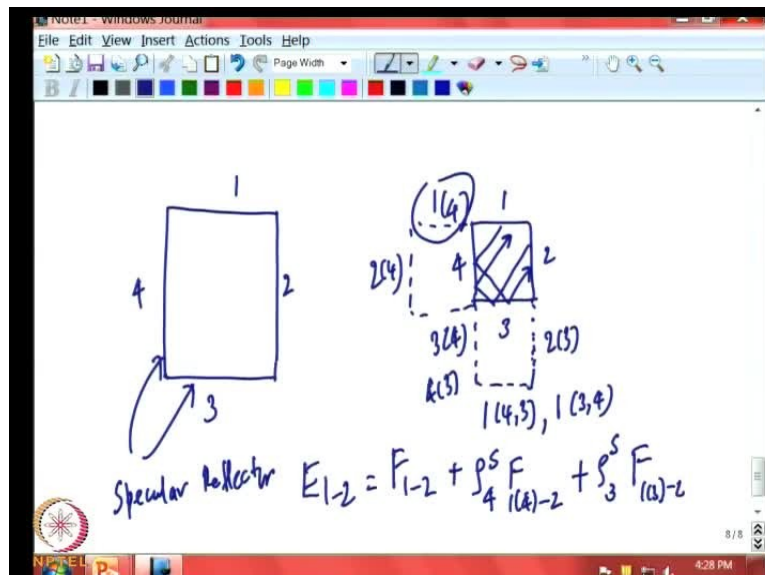 Note1 - Windows Journal
File Edit View Insert Actions Tools Help
Page Width
B I
1
4
2
3
Specular Reflector
1(4)
1
2(4)
4
2
3(4)
3
2(3)
4(3)
1(4,3), 1(3,4)
E1-2 = F1-2 + ρ4^S F1(4)-2 + ρ3^S F1(3)-2
8/8
NPTEL
4:28 PM